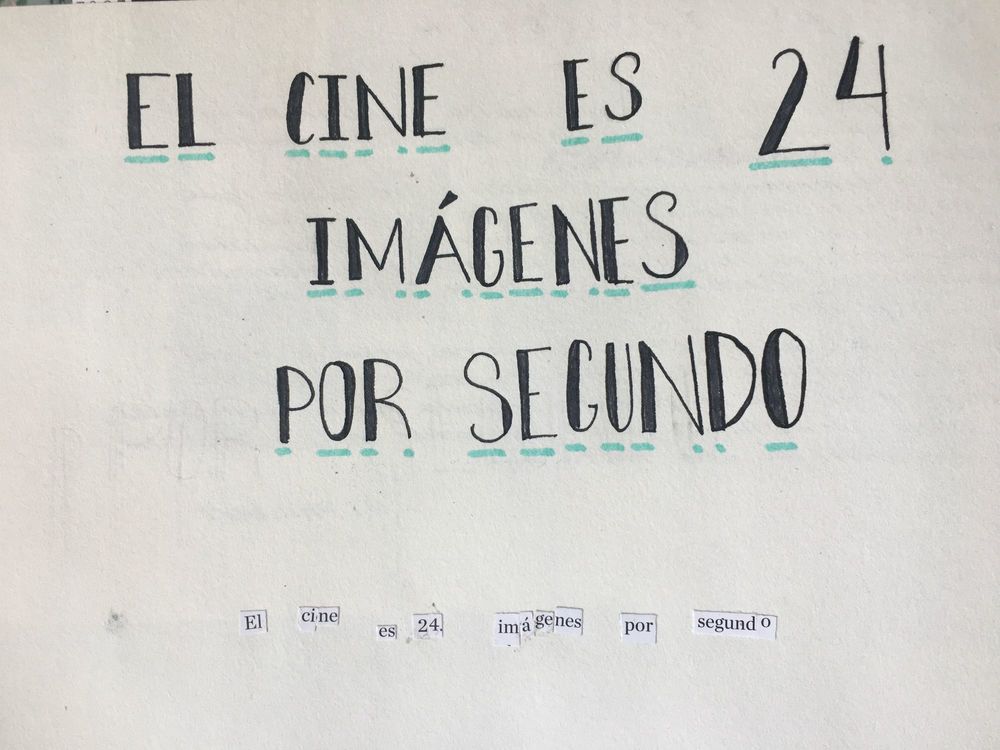 EL CINE ES 24
IMÁGENES
POR SEGUNDO
El cine es 24. imágenes por segundo